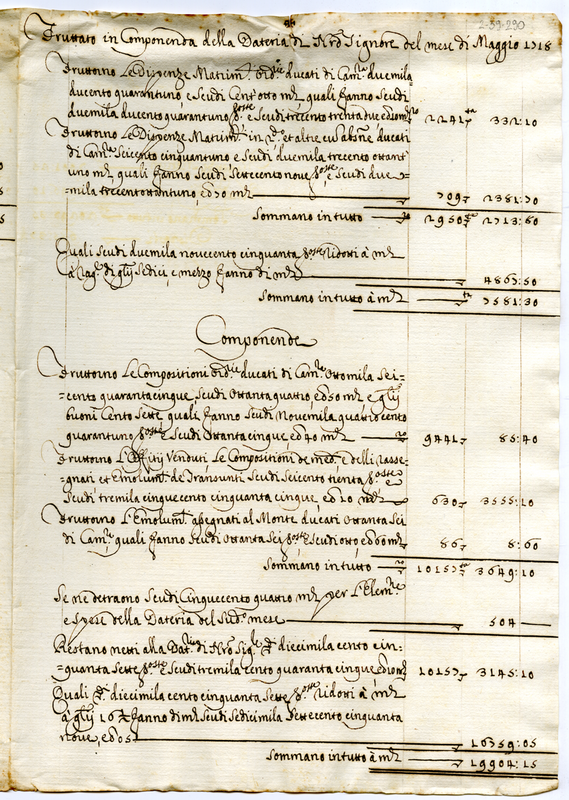 2-39-290
Fruttato in Componenda della Dateria di Nrõ Signore del mese di Maggio 1718
Fruttorno Le Dispenze Matrim. ducati di Cam. duemila
ducento quarantuno, e Scudi Cent'otto mta quali fanno Scudi
duemila ducento quarantuno e Scudi trecento trenta due 2241 332:10
Fruttorno Le Dispenze Matrim. in et altre ducati
di Cam. Seicento cinquantuno e Scudi duemila trecento ottant'
uno mta, quali fanno Scudi Settecento nove e Scudi due=
=mila trecentottantuno, e 70 mta 709 2381:70
Sommano in tutto 2950 2713:80
Quali Scudi duemila novecento cinquanta ridotti à mta
à di Sedici, e mezzo fanno di mta 4867:50
Sommano in tutto à mta 7581:30
Componende
Fruttorno Le Compositioni ducati di Cam. Ottomila Sei=
=cento quaranta cinque, Scudi Ottanta quattro, e 50 mta e
buoni Cento Sette quali fanno Scudi Novemila quattro cento
quarantuno e Scudi Ottanta cinque, e 40 mta 9441 85:40
Fruttorno Venduti Le Compositioni de med. e delli rasse=
=gnati et Emolum. de Transunti Scudi Seicento trenta e
Scudi tremila cinquecento cinquanta cinque, e 10 mta 630 3555:10
Fruttorno L'Emolum. assegnati al Monte ducati Ottanta Sei
di Cam. quali fanno Scudi Ottanta Sei e Scudi otto e 60 mta 86 8:60
Sommano in tutto 10157 3649:10
Se ne detraono Scudi Cinquecento quattro mta per L'Elem.
e spese della Dateria del Sud. mese 504
Restano netti alla Dat. di Nrõ Sig. diecimila cento cin=
=quanta Sette e Scudi tremila cento quaranta cinque 10157 3145:10
Quali diecimila cento cinquanta Sette ridotti à mta
à 16½ fanno di mta Scudi Sedicimila Settecento cinquanta
nove, e 05 16759:05
Sommano in tutto à mta 19904:15